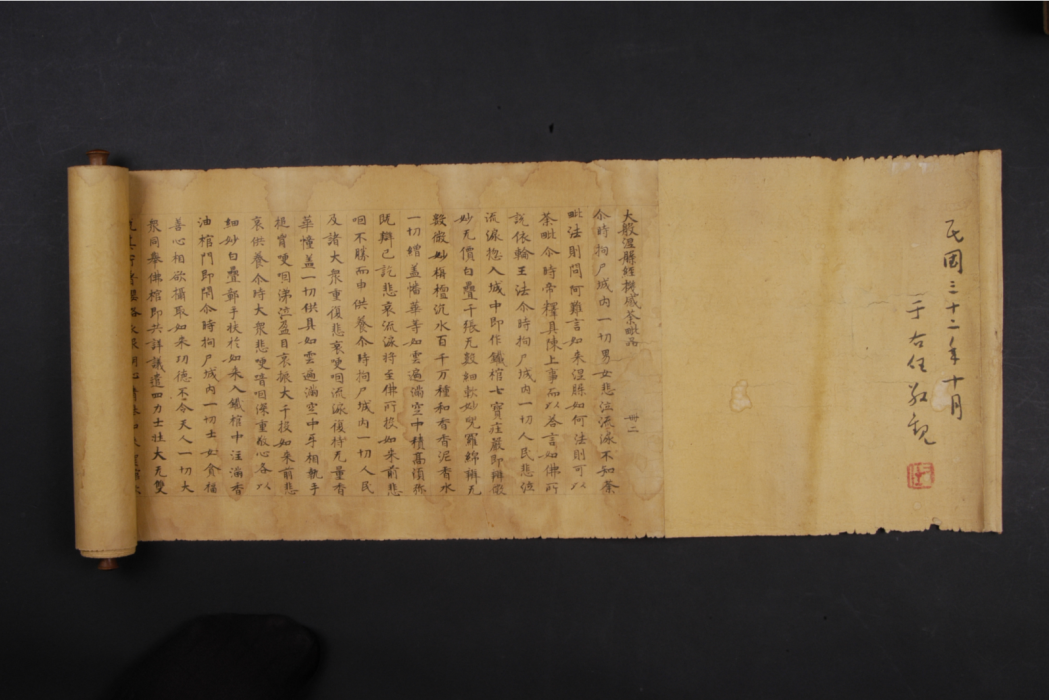 民國三十二年十月
于右任敬觀
大般涅槃經機感荼毗品 卌二
尒時拘尸城内一切男女悲泣流淚不知荼
毗法則問阿難言如来涅槃如何法則可以
荼毗尒時帝釋具陳上事而以荅言如佛所
說依輪王法尒時拘尸城内一切人民悲泣
流淚㧾入城中即作鐵棺七寶莊嚴即辦微
妙无價白疊千張无數細軟妙兜羅綿辦无
數微妙栴檀沉水百千万種和香香泥香水
一切繒盖幡華等如雲遍滿空中積高須弥
既辦已訖悲哀流淚将至佛所投如来前悲
咽不勝而申供養尒時拘尸城内一切人民
及諸大衆重復悲哀哽咽流淚復持无量香
華幢盖一切供具如雲遍滿空中牙相執手
搥胷哽咽涕泣盈目哀振大千投如来前悲
哀供養尒時大衆悲哽喑咽深重敬心各以
細妙白疊鄣手扶於如来入鐵棺中注滿香
油棺門即閇尒時拘尸城内一切士女貪福
善心相欲攝取如来功德不令天人一切大
衆同舉佛棺即共詳議遣四力士壯大无雙